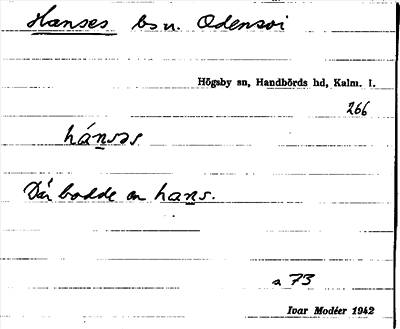 Hanses bs n. Odensvi
Högsby sn, Handbörds hd, Kalm. l.
266
hánsəs
Där bodde en hans.
a 73
Ivar Modéer 1942